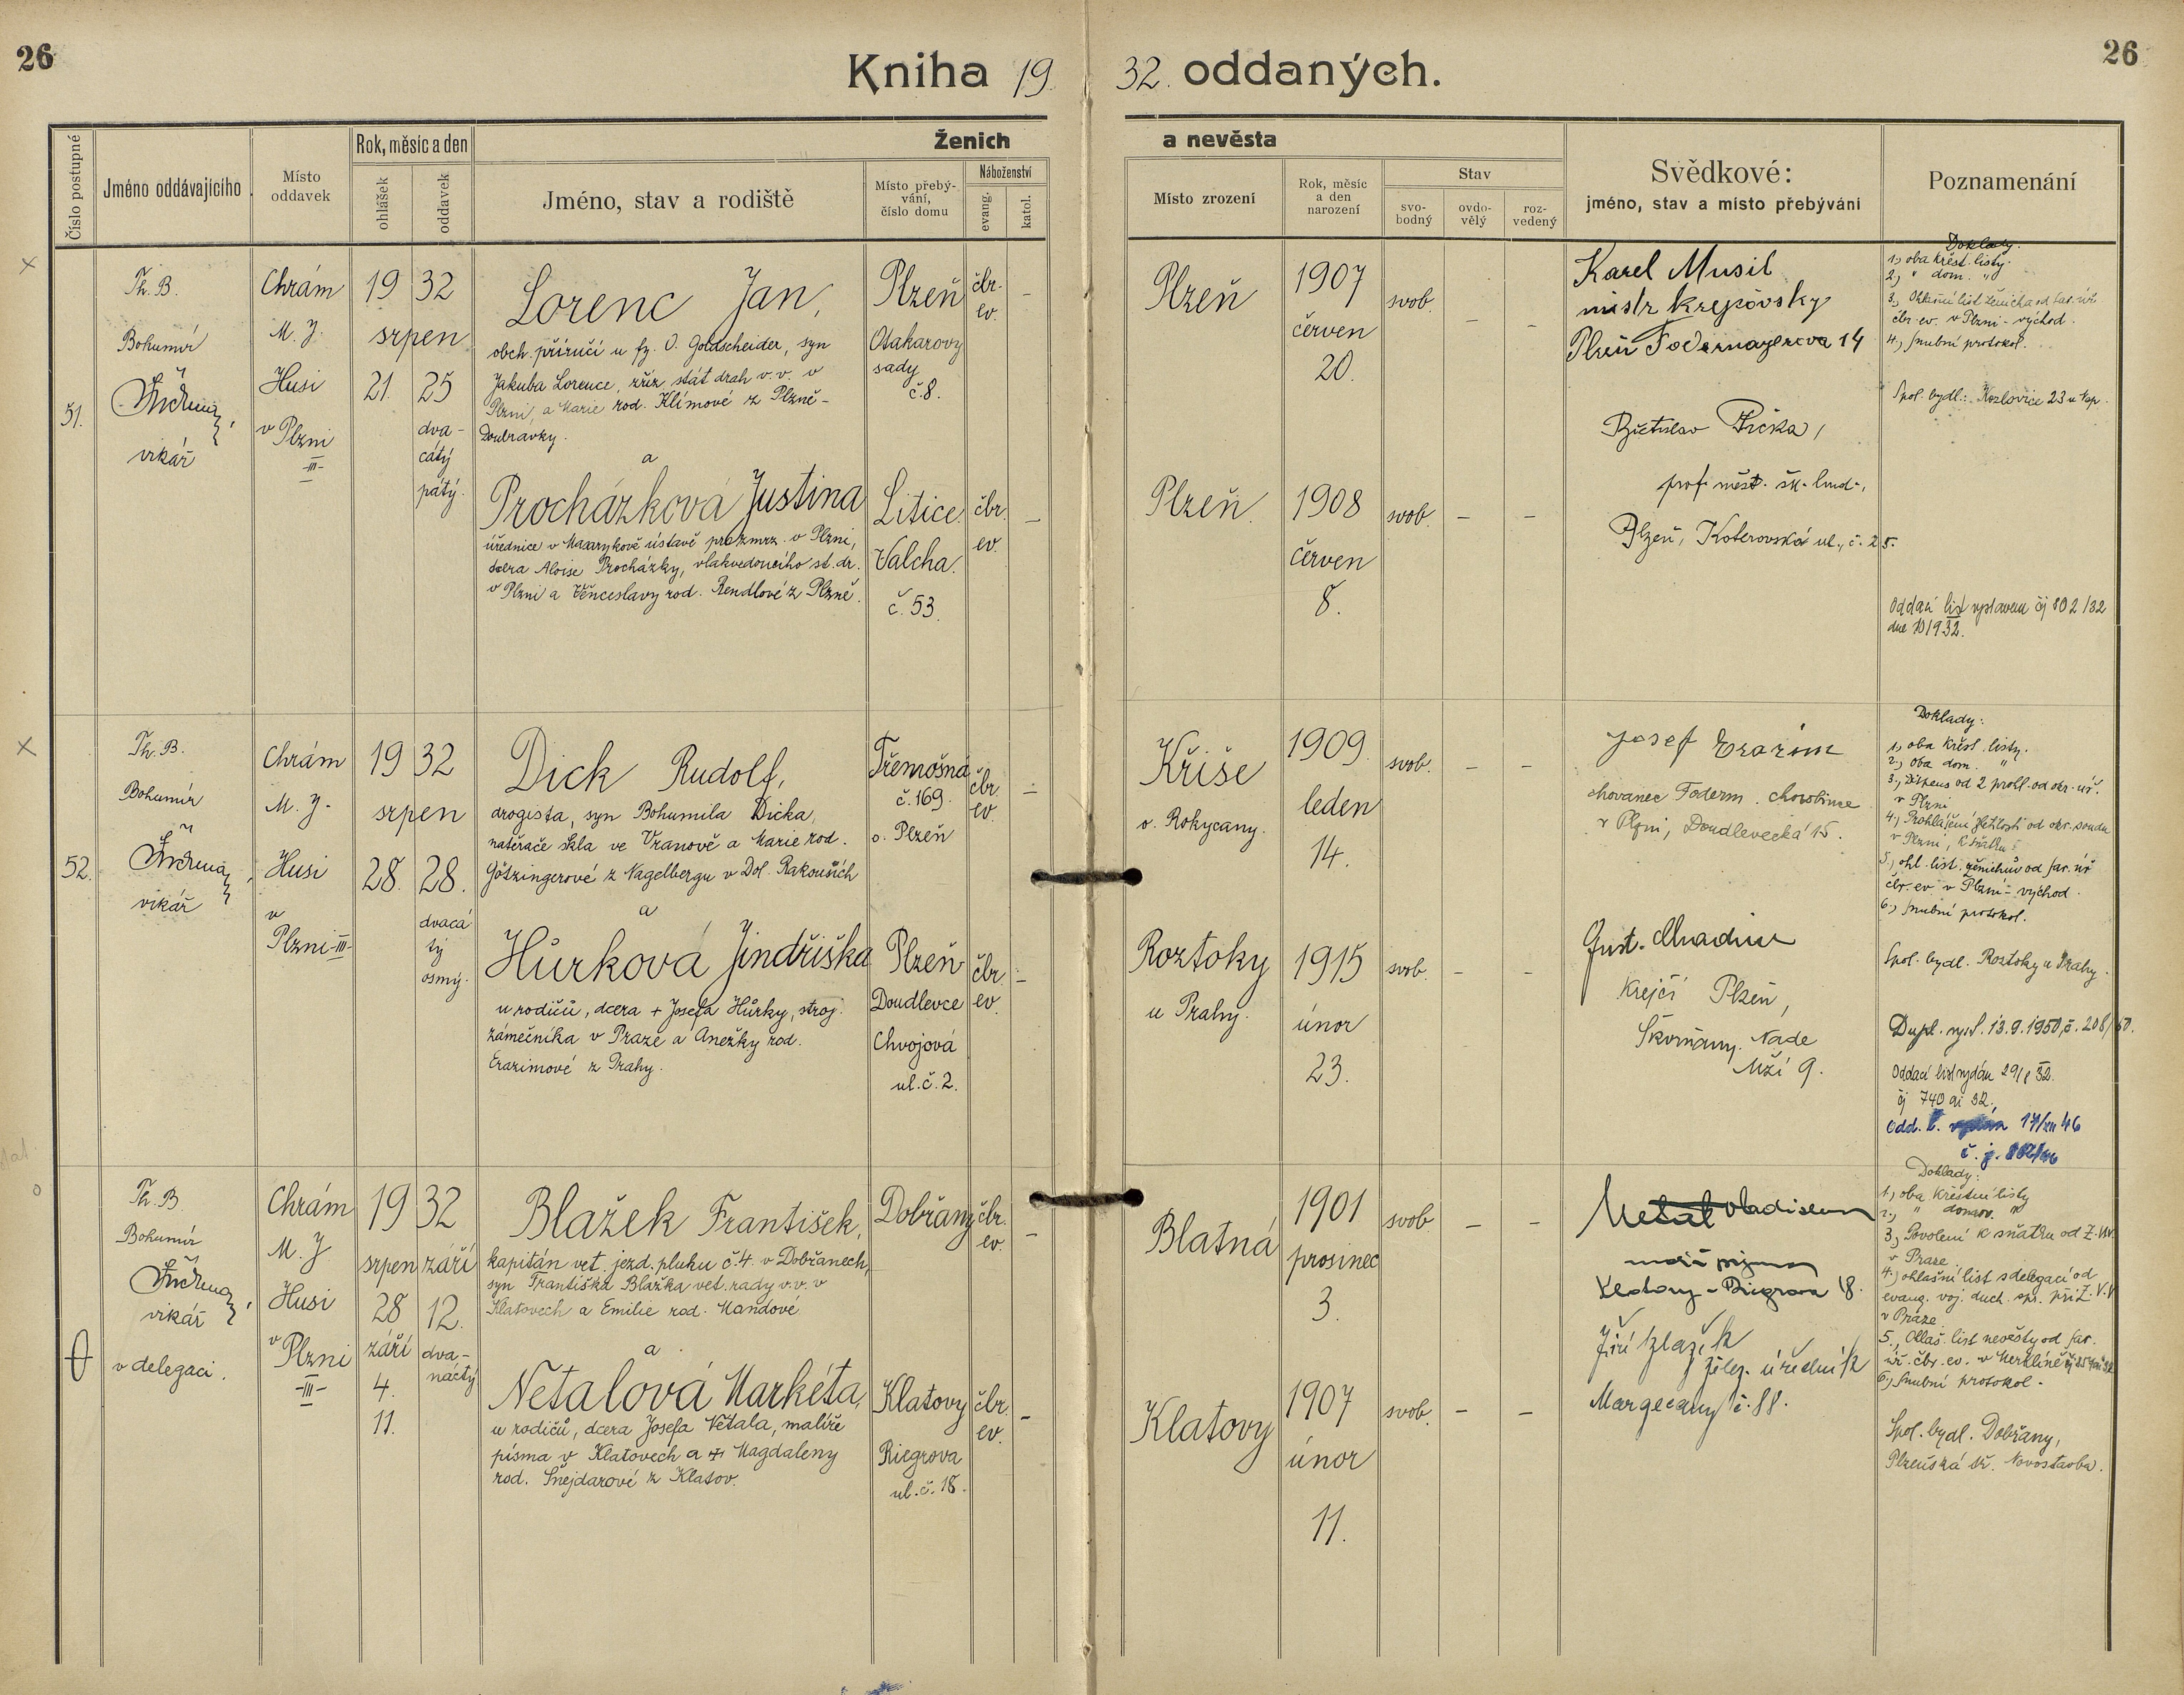 26
Kniha 19 32. oddaných.
26
Číslo postupné
Jméno oddávajícího
Místo
oddavek
Rok, měsíc a den
ohlášek
oddavek
Ženich
Jméno, stav a rodiště
Místo přebý-
vání,
číslo domu
Náboženství
evang.
katol.
a nevěsta
Místo zrození
Rok, měsíc
a den
narození
Stav
svo-
bodný
ovdo-
vělý
roz-
vedený
Svědkové:
jméno, stav a místo přebývání
Poznamenání
51.
Th. B.
Bohumír
vikář
Chrám
M. J.
Husi
v Plzni
-III-
19 32
srpen
21. 25
dva-
cátý
pátý.
Lorenc Jan,
obch. příručí u fy. O. Goldscheider, syn
Jakuba Lorence, zříz. stát drah v. v. v
Plzni, a Marie rod. Klímové z Plzně-
Doubravky.
a
Procházková Justina
úřednice v Masarykově ústavě pro zmrz. v Plzni,
dcera Aloise Procházky, vlakvedoucího st. dr.
v Plzni a Věnceslavy rod. Rendlové z Plzně.
Plzeň
Otakarovy
sady
č. 8.
čbr.
ev.
-
Litice.
Valcha.
č. 53.
čbr.
ev.
-
Plzeň
1907
červen
20.
svob. - -
Plzeň.
1908
červen
8.
svob. - -
Karel Musil
mistr krejčovský
Plzeň 14
Břetislav
prof. měst. šk. hud.,
Plzeň, Koterovská ul., č. 25.
Doklady.
1., oba křest. listy.
2., " dom. "
3., Ohlašní list ženicha od far. úř.
čbr. ev. v Plzni - východ.
4., snubní protokol.
Spol. bydl.: Kozlovice 23 u Nep.
Oddací list vystaven čj 802/32
dne
52.
Th. B.
Bohumír
vikář
Chrám
M. J.
Husi
v
Plzni-III-
19 32
srpen
28. 28.
dvacá
tý
osmý.
Dick Rudolf,
drogista, syn Bohumila Dicka,
natěrače skla ve Vranově a Marie rod.
Götzingerové z Nagelbergu v Dol. Rakousích
a
Hůrková Jindřiška
u rodičů, dcera + Josefa Hůrky, stroj.
zámečníka v Praze a Anežky rod.
Erazimové z Prahy.
Třemošná
č. 169.
o. Plzeň
čbr.
ev.
-
Plzeň
Doudlevce
Chvojová
ul. č. 2.
čbr.
ev.
-
Kříše
o. Rokycany.
1909.
leden
14.
svob. - -
Roztoky
u Prahy.
1915
únor
23.
svob. - -
Josef Erazim
chovanec
v Plzni, Doudlevecká 15.
Gust.
krejčí Plzeň,
Škvrňany. Nade
Mží 9.
Doklady:
1., oba křest. listy.
2., oba dom. "
3., Dispens od 2 prohl. od okr. úř.
v Plzni
4., Prohlášení zletilosti od okr. soudu
v Plzni, k sňatku
5., ohl. list. ženichův od far. úř
čbr. ev v Plzni - východ.
6., snubní protokol.
Spol. bydl. Roztoky u Prahy.
Dupl. vyst. 13. 9. 1950, č. 208/50.
Oddací list vydán 29/8 32.
čj 740 ai 32.
Odd. l. 17/XII 46
č. j.
Th. B.
Bohumír
vikář
v delegaci.
Chrám
M. J
Husi
v Plzni
-III-
19 32
srpen září
28 12.
září dva-
4. náctý
11.
Blažek František,
kapitán vet. jezd. pluku č. 4. v Dobřanech,
syn Františka Blažka vet. rady v. v. v
Klatovech a Emilie rod. Mandové
a
Netalová Markéta,
u rodičů, dcera Josefa Netala, malíře
písma v Klatovech a + Magdaleny
rod. Šnejdarové z Klatov.
Dobřany
čbr.
ev.
-
Klatovy
Riegrova
ul. č. 18.
čbr.
ev.
-
Blatná
1901
prosinec
3.
svob - -
Klatovy
1907
únor
11.
svob. - -
Netal
malíř písma
Klatovy - Riegrova 18.
Jiří Blažek
želez. úředník
Margecany č. 88.
Doklady:
1., oba křestní listy
2., " domov. "
3., Povolení k sňatku od Z.V.V.
v Praze.
4., ohlašní list s delegací od
evang. voj. duch. spr. při Z.V.V
v Praze.
5., Ohlaš. list nevěsty od far.
úř. čbr. ev. v Merklíně
6., Snubní protokol.
Spol. bydl. Dobřany,
Plzeňská tř. Novostavba.